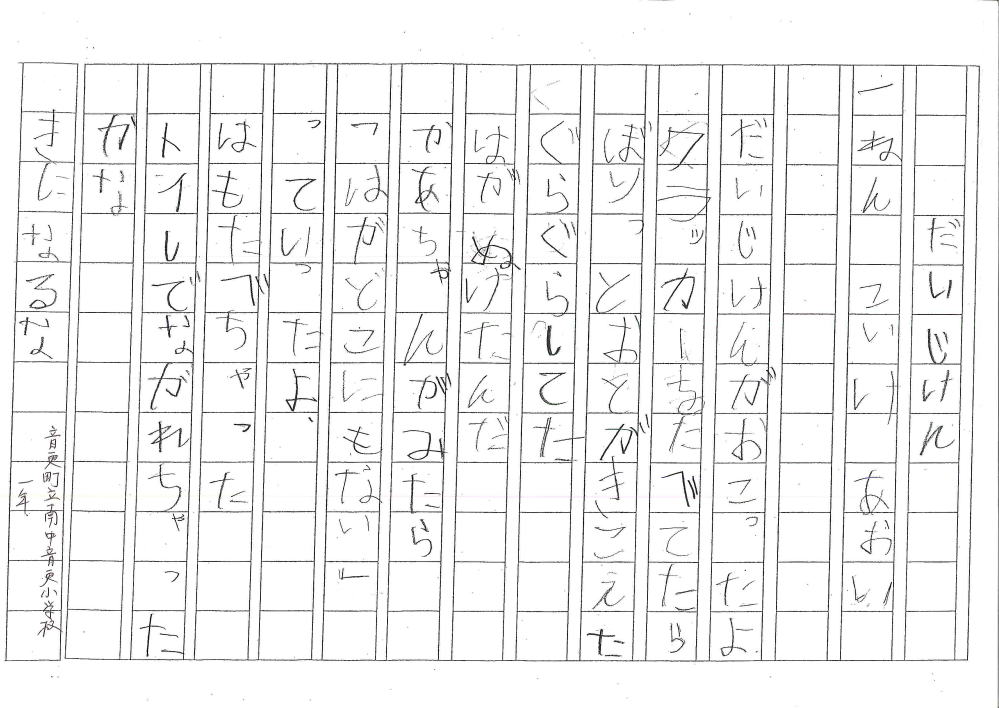 だいじけん
一ねん こいけ あおい
だいじけんがおこっだよ
クラッカーをたべてたら
ばりっとおとがきこえた
ぐらぐらしてた
はがぬけたんだ
かあちゃんがみたら
「はがどこにもない」
っていったよ、
はもたべちゃった
トイレでながれちゃった
かな
きになるな
音更町立南中音更小学校
一年